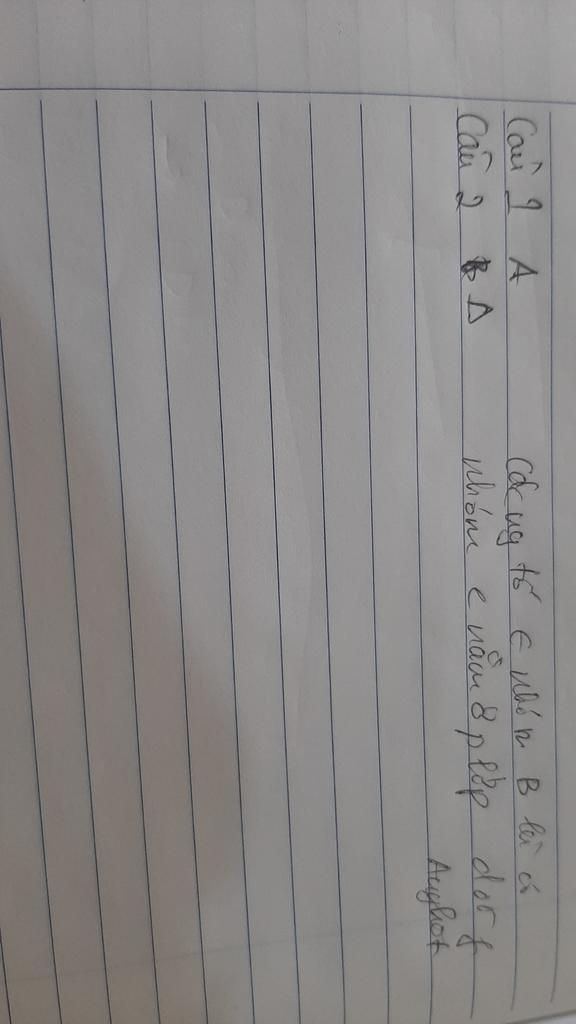 Câu 1 A các ng tố ∈ nhóm B là
Câu 2 D nhóm e nằm ở p lớp d or f